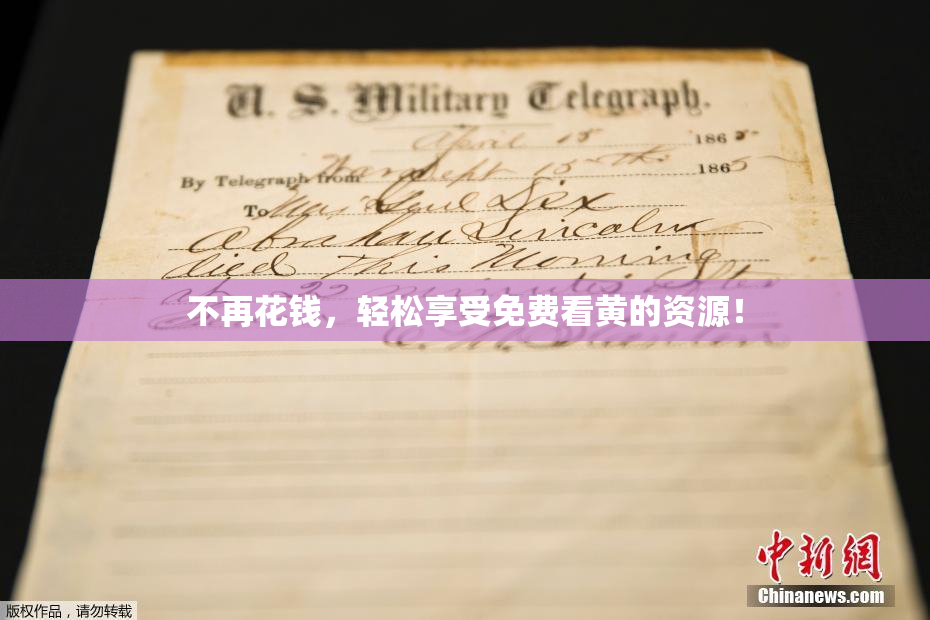 U. S. Military Telegraph.
April 15 1865
By Telegraph from War Dept 15th 1865
To Maj Genl Dix
Abraham Lincoln
died This Morning
at 22 minutes after
不再花钱，轻松享受免费看黄的资源！
E. M. Stanton
中新网
Chinanews.com
版权作品，请勿转载